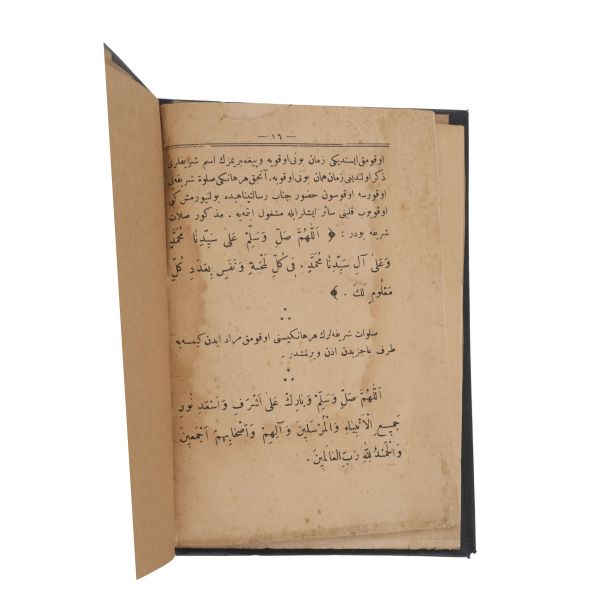 — ١٦ —
اوقومق ایستدیكی زمان بونی اوقویه و پیغمبریمزك اسم شریفلری
ذكر اولندیغی زمان همان بونی اوقویه. آنجق هر هانكی صلوة شریفه‌یی
اوقورسه اوقوسون حضور جناب رسالتپناهیده بولنیورمش كبی
اوقویوب قلبنی سائر ایشلر ایله مشغول ایتمه‌یه . مذكور صلات
شریفه بودر : ﴿ اَللّٰهُمَّ صَلِّ وَسَلِّمْ عَلىٰ سَيِّدِنَا مُحَمَّدٍ
وَعَلىٰ آلِ سَيِّدِنَا مُحَمَّدٍ . فِى كُلِّ لَمْحَةٍ وَنَفَسٍ بِعَدَدِ كُلِّ
مَعْلُومٍ لَكَ . ﴾
⁂
صلوات شریفه‌لرك هر هانكیسنی اوقومق مراد ایدن كیمسه‌یه
طرف عاجزیدن اذن ویرلمشدر .
⁂
اَللّٰهُمَّ صَلِّ وَسَلِّمْ وَبَارِكْ عَلىٰ اَشْرَفِ وَاَسْعَدِ نُورِ
جَمِيعِ الْاَنْبِيَاءِ وَالْمُرْسَلِينَ وَآلِهِمْ وَاَصْحَابِهِمْ اَجْمَعِينَ
وَالْحَمْدُ لِلّٰهِ رَبِّ الْعَالَمِينَ .